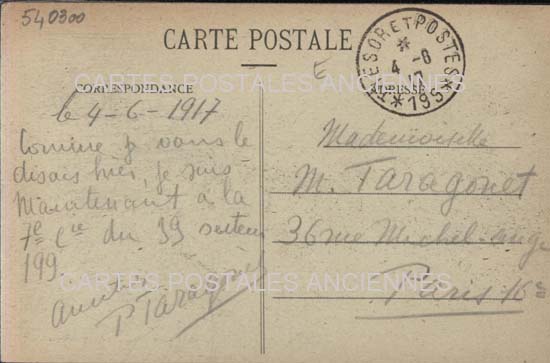 540300
CARTE POSTALE
E
TRESOR ET POSTES
* 4 - 6 17
* 195 *
CORRESPONDANCE
ADRESSE
CARTES POSTALES ANCIENNES
le 4-6-1917
Comme je vous le
disais hier, je suis
Maintenant à la
7e Cie du 39 secteur
199.
P Taragonet
Mademoiselle
M. Taragonet
36 rue Michel-ange
Paris 16e
CARTES POSTALES ANCIENNES